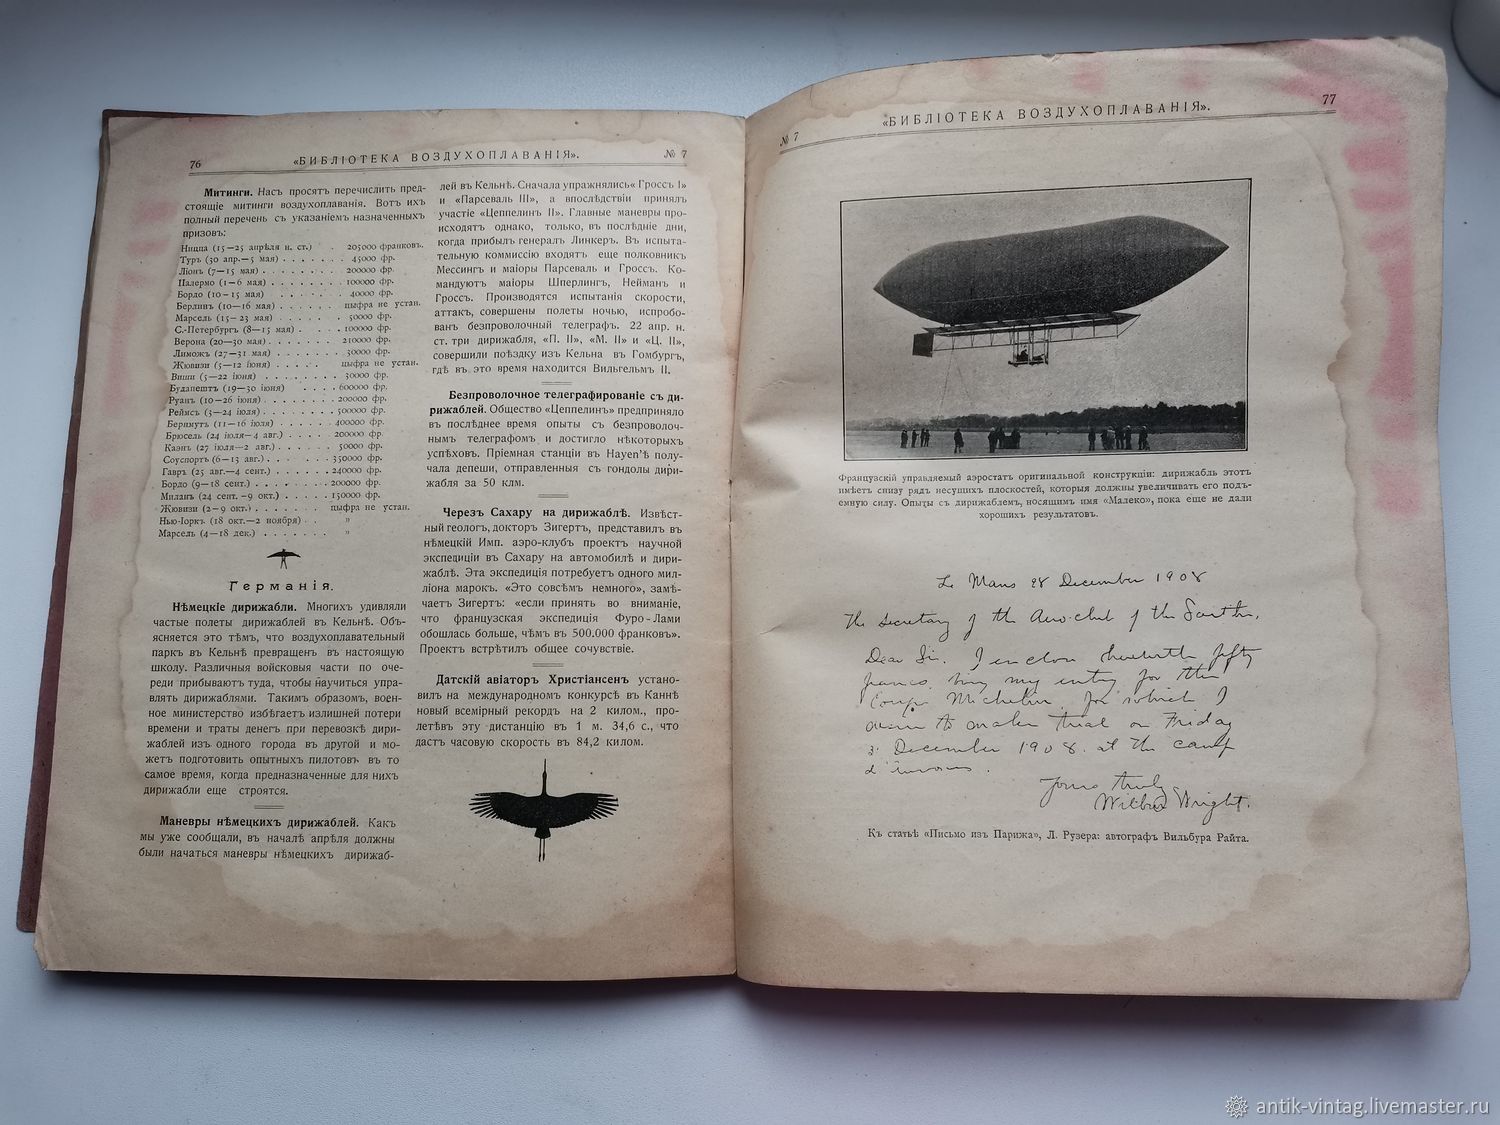 76 «БИБЛІОТЕКА ВОЗДУХОПЛАВАНІЯ». № 7
Митинги. Насъ просятъ перечислить пред-
стоящіе митинги воздухоплаванія. Вотъ ихъ
полный перечень съ указаніемъ назначенныхъ
призовъ:
Ницца (15—25 апрѣля н. ст.) . 205000 франковъ.
Туръ (30 апр.—5 мая) . . . . . . . 45000 фр.
Ліонъ (7—15 мая) . . . . . . . . 200000 фр.
Палермо (1—6 мая) . . . . . . . . 100000 фр.
Бордо (10—15 мая) . . . . . 40000 фр.
Берлинъ (10—16 мая) . . . . . . цыфра не устан.
Марсель (15—23 мая) . . . . . . 50000 фр.
С.-Петербургъ (8—15 мая) . . . . 100000 фр.
Верона (20—30 мая) . . . . . . . 210000 фр.
Лиможъ (27—31 мая) . . . . . . . 30000 фр.
Жювизи (5—12 іюня) . . . . . . цыфра не устан.
Виши (5—22 іюня) . . . . . . . . 30000 фр.
Будапештъ (19—30 іюня) . . . . 600000 фр.
Руанъ (10—26 іюня) . . . . . . . . 200000 фр.
Реймсъ (3—24 іюля) . . . . . . . . 500000 фр.
Бернмутъ (11—16 іюля) . . . . . . 400000 фр.
Брюсель (24 іюля—4 авг.) . . . . 200000 фр.
Каэнъ (27 іюля—2 авг.) . . . . . . 50000 фр.
Соуспортъ (6—13 авг.) . . . . . . 350000 фр.
Гавръ (25 авг.—4 сент.) . . . . . . 240000 фр.
Бордо (9—18 сент.) . . . . . . . . 200000 фр.
Миланъ (24 сент.—9 окт.) . . . . . 150000 фр.
Жювизи (2—9 окт.) . . . . . . . цыфра не устан.
Нью-Іоркъ (18 окт.—2 ноября) . . "
Марсель (4—18 дек.) . . . . . . . "
Германія.
Нѣмецкіе дирижабли. Многихъ удивляли
частые полеты дирижаблей въ Кельнѣ. Объ-
ясняется это тѣмъ, что воздухоплавательный
паркъ въ Кельнѣ превращенъ въ настоящую
школу. Различныя войсковыя части по оче-
реди прибываютъ туда, чтобы научиться упра-
влять дирижаблями. Такимъ образомъ, воен-
ное министерство избѣгаетъ излишней потери
времени и траты денегъ при перевозкѣ дири-
жаблей изъ одного города въ другой и мо-
жетъ подготовить опытныхъ пилотовъ въ то
самое время, когда предназначенные для нихъ
дирижабли еще строятся.
Маневры нѣмецкихъ дирижаблей. Какъ
мы уже сообщали, въ началѣ апрѣля должны
были начаться маневры нѣмецкихъ дирижаб-
лей въ Кельнѣ. Сначала упражнялись «Гроссъ I»
и «Парсеваль III», а впослѣдствіи принялъ
участіе «Цеппелинъ II». Главные маневры про-
исходятъ однако, только, въ послѣдніе дни,
когда прибылъ генералъ Линкеръ. Въ испыта-
тельную коммиссію входятъ еще полковникъ
Мессингъ и маіоры Парсеваль и Гроссъ. Ко-
мандуютъ маіоры Шперлингъ, Нейманъ и
Гроссъ. Производятся испытанія скорости,
аттакъ, совершены полеты ночью, испробо-
ванъ безпроволочный телеграфъ. 22 апр. н.
ст. три дирижабля, «П. II», «М. II» и «Ц. II»,
совершили поѣздку изъ Кельна въ Гомбургъ,
гдѣ въ это время находится Вильгельмъ II.
Безпроволочное телеграфированіе съ ди-
рижаблей. Общество «Цеппелинъ» предприняло
въ послѣднее время опыты съ безпроволоч-
нымъ телеграфомъ и достигло нѣкоторыхъ
успѣховъ. Пріемная станціи въ Hayen'ѣ полу-
чала депеши, отправленныя съ гондолы дири-
жабля за 50 клм.
Черезъ Сахару на дирижаблѣ. Извѣст-
ный геологъ, докторъ Зигертъ, представилъ въ
нѣмецкій Имп. аэро-клубъ проектъ научной
экспедиціи въ Сахару на автомобилѣ и дири-
жаблѣ. Эта экспедиція потребуетъ одного мил-
ліона марокъ. «Это совсѣмъ немного», замѣ-
чаетъ Зигертъ: «если принять во вниманіе,
что французская экспедиція Фуро-Лами
обошлась больше, чѣмъ въ 500.000 франковъ».
Проектъ встрѣтилъ общее сочувствіе.
Датскій авіаторъ Христіансенъ устано-
вилъ на международномъ конкурсѣ въ Каннѣ
новый всемірный рекордъ на 2 килом., про-
летѣвъ эту дистанцію въ 1 м. 34,6 с., что
дастъ часовую скорость въ 84,2 килом.
№ 7 «БИБЛІОТЕКА ВОЗДУХОПЛАВАНІЯ». 77
Французскій управляемый аэростатъ оригинальной конструкціи: дирижабль этотъ
имѣетъ снизу рядъ несущихъ плоскостей, которыя должны увеличивать его подъ-
емную силу. Опыты съ дирижаблемъ, носящимъ имя «Малеко», пока еще не дали
хорошихъ результатовъ.
Le Mans 28 December 1908
The Secretary of the Aero-club of the Sarthe,
Dear Sir. I enclose herewith fifty
francs, being my entry for the
Coupe Michelin, for which I
wish to make trial on Friday
31 December 1908 at the camp
d'Auvours.
Yours truly
Wilbur Wright.
Къ статьѣ «Письмо изъ Парижа», Л. Рузера: автографъ Вильбура Райта.
antik-vintag.livemaster.ru